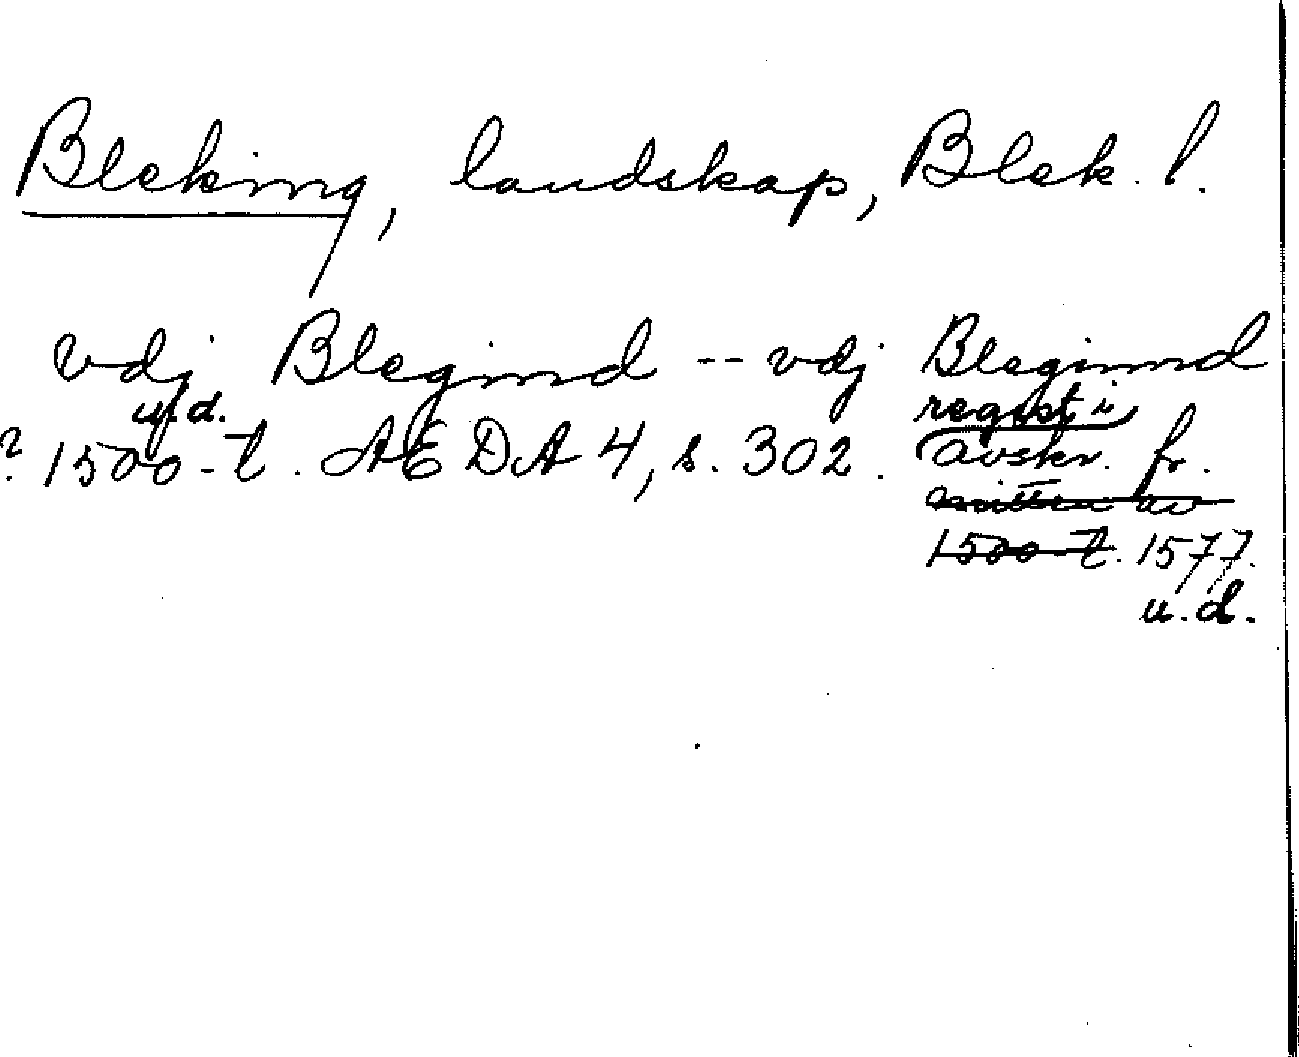 Bleking, landskap, Blek. l.
vdj Blegind -- vdj Bleginnd
u.d. regist i
? 1500-t. AEDA 4, s. 302. (avskr. fr.
mitten av
1500-t. 1577.
u.d.